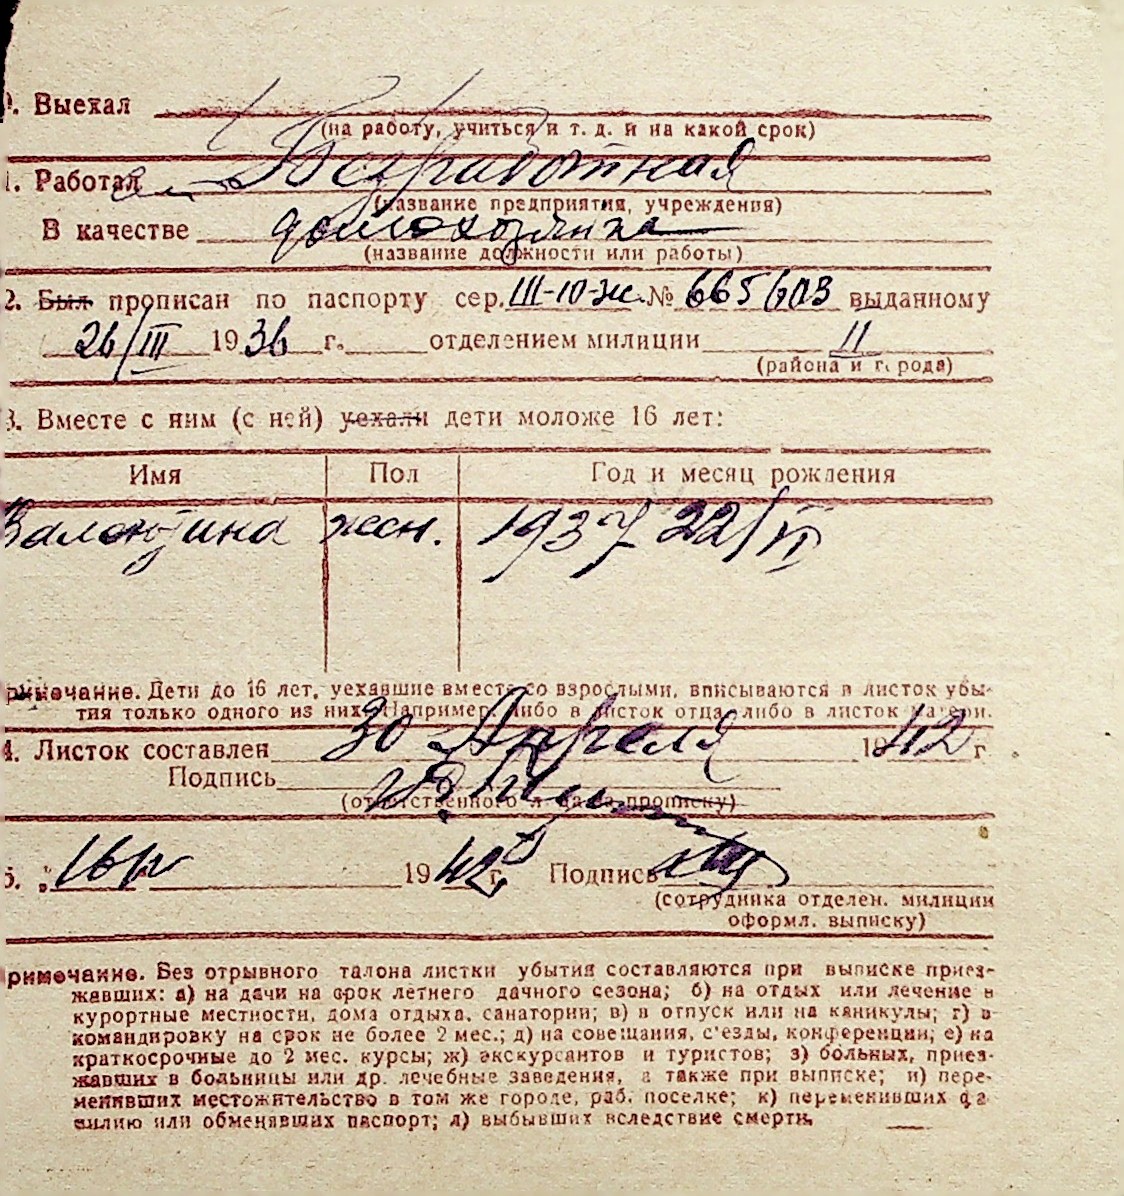 . Выехал
(на работу, учиться и т. д. и на какой срок)
1. Работал Безработная
(название предприятия, учреждения)
В качестве домохозяйка
(название должности или работы)
2. Был прописан по паспорту сер. III-Ю-Ж № 665603 выданному
26/III 1936 г. отделением милиции 11
(района и города)
3. Вместе с ним (с ней) уехали дети моложе 16 лет:
Имя Пол Год и месяц рождения
Валентина жен. 1937 22/VI
римечание. Дети до 16 лет, уехавшие вместе со взрослыми, вписываются в листок убы-
тия только одного из них. Например, либо в листок отца, либо в листок матери.
4. Листок составлен 30 Апреля 1942 г
Подпись
(ответственного лица за прописку)
5. 1942 г. Подпись
(сотрудника отделен. милиции
оформл. выписку)
римечание. Без отрывного талона листки убытия составляются при выписке приез-
жавших: а) на дачи на срок летнего дачного сезона; б) на отдых или лечение в
курортные местности, дома отдыха, санатории; в) в отпуск или на каникулы; г) в
командировку на срок не более 2 мес.; д) на совещания, с'езды, конференции; е) на
краткосрочные до 2 мес. курсы; ж) экскурсантов и туристов; з) больных, приез-
жавших в больницы или др. лечебные заведения, а также при выписке; и) пере-
менивших местожительство в том же городе, раб. поселке; к) переменивших фа
милию или обменявших паспорт; л) выбывших вследствие смерти.